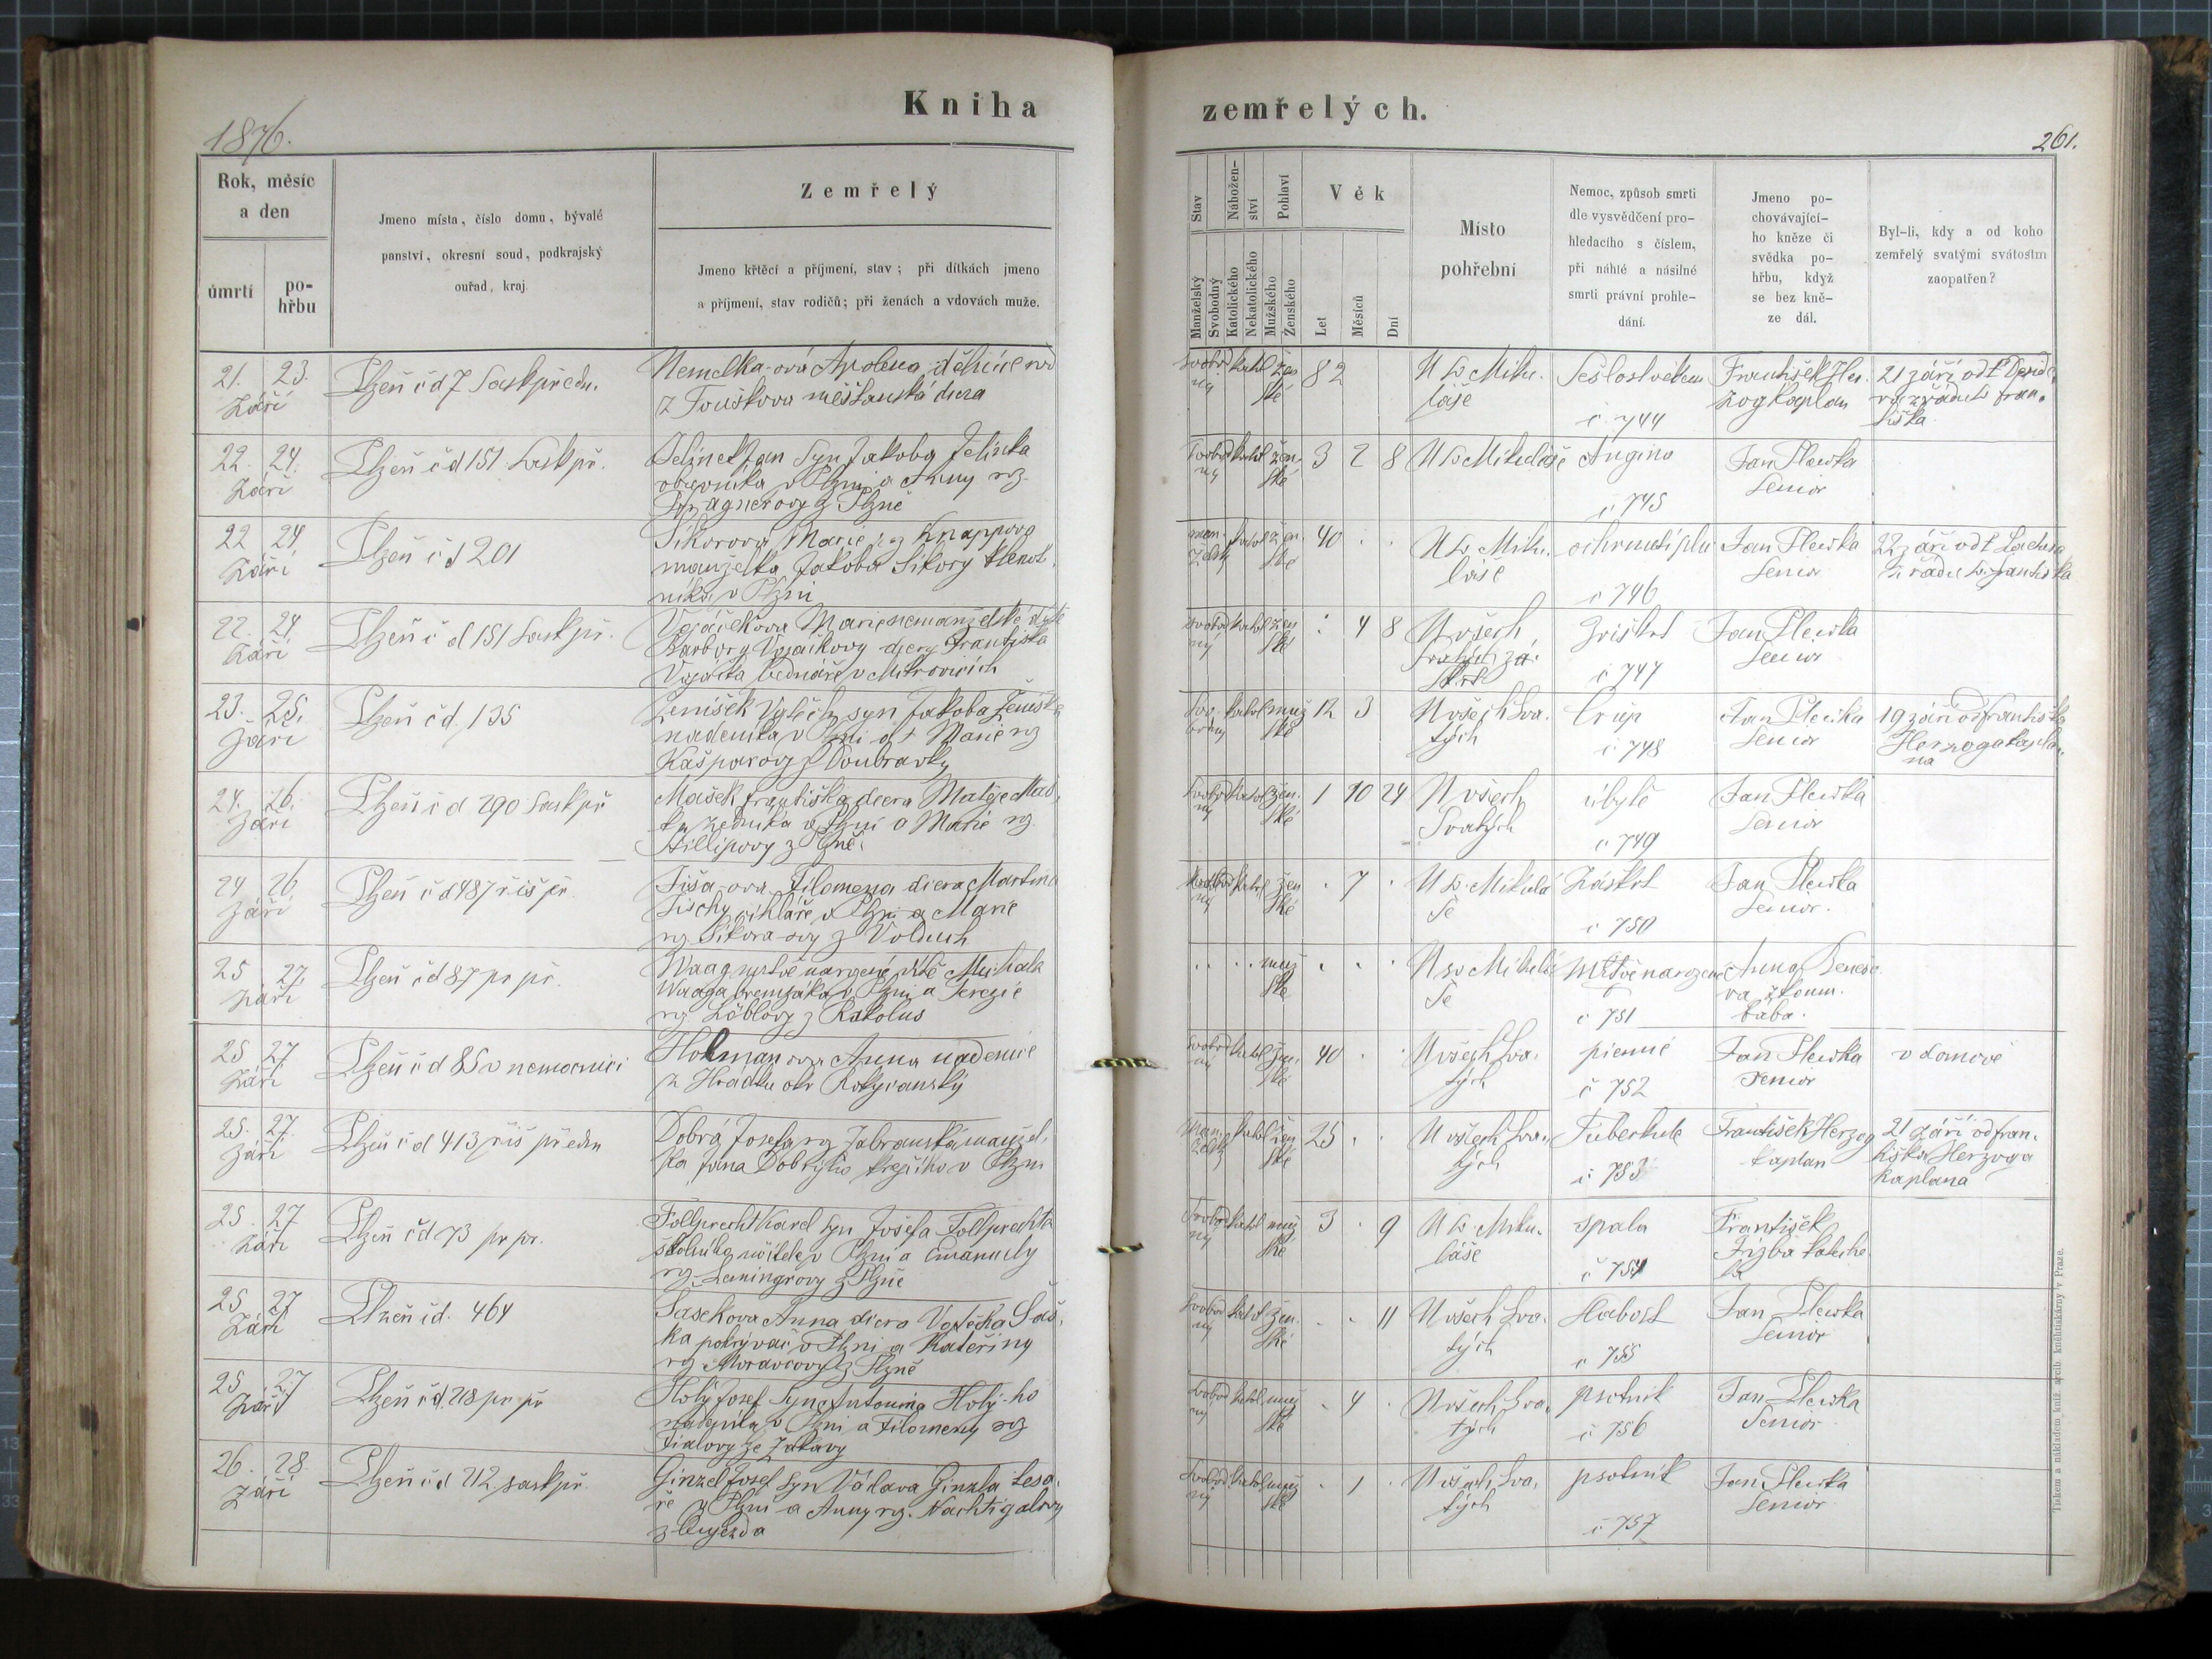 Kniha
zemřelých.
1876.
261.
Rok, měsíc
a den
úmrtí
po-
hřbu
Jmeno místa, číslo domu, bývalé
panství, okresní soud, podkrajský
ouřad, kraj.
Zemřelý
Jmeno křtěcí a příjmení, stav; při dítkách jmeno
a příjmení, stav rodičů; při ženách a vdovách muže.
Stav
Manželský
Svobodný
Nábožen-
ství
Katolického
Nekatolického
Pohlaví
Mužského
Ženského
Věk
Let
Měsíců
Dní
Místo
pohřební
Nemoc, způsob smrti
dle vysvědčení pro-
hledacího s číslem,
při náhlé a násilné
smrti právní prohle-
dání.
Jmeno po-
chovávající-
ho kněze či
svědka po-
hřbu, když
se bez kně-
ze dál.
Byl-li, kdy a od koho
zemřelý svatými svátostm
zaopatřen?
21. 23.
Září
Plzeň čd 7 Saskpředm.
Apolena
z Touškova měšťanská dcera
82
U sv Miku-
láše
č 744
František Her-
zog kaplan
21 září od
22. 24.
Září
Plzeň čd 151 Saskpř.
Jelínek Jan syn Jakoba Jelínka
v Plzni a Anny rz.
z Plzně
3 2 8
U sv Mikuláše
Angina
č 745
Jan Plevka
Senior
22 24
Září
Plzeň čd 201
Sikorová Marie rz Knappova
manželka Jakoba Sikory
v Plzni
40
U sv. Miku-
láše
ochrnutí plic
č 746
Jan Plevka
Senior
22 září od
22. 24
Září
Plzeň č d 151 Saskpř.
Vojáčkova Marie nemanželské dítě
Barbory Vojáčkovy dcery Františka
Vojáčka bednáře v Mitrovicích
4 8
U všech
č 747
Jan Plevka
Senior
23. 25.
Září
Plzeň čd. 135
Ženíšek Vojtěch syn Jakoba Ženíška
nadenníka v Plzni a Marie rz
Kašparovy z Doubravky
12 3
U všech Sva-
tých
Croup
č 748
Jan Plevka
Senior
19 září od Františka
Herzoga kapla-
na
24. 26.
Září
Plzeň č d 290 Saskpř
Mašek Františka dcera Matěje Maš-
ka zedníka v Plzni a Marie rz.
Fillipovy z Plzně
1 10 24
U všech
Svatých
úbytě
č 749
Jan Plevka
Senior
24 26
Září
Plzeň č d 487 říš př
Fiša-ova Filomena dcera Martina
v Plzni a Marie
rz. Sikora-ovy z Volduch
7
U sv. Mikulá-
še
Záškrt
č 750
Jan Plevka
Senior.
25 27
Září
Plzeň čd 87 pr př.
Waag mrtvě narozené dítě Michala
Waaga bremzáka v Plzni a Terezie
rz. Löblovy z Rakolus
U sv Mikulá-
še
Mrtvě narozené
č 751
Anna Beneše-
va zkoum.
bába.
25 27
Září
Plzeň č d 85 v nemocnici
Holman-ova Anna nadenice
z Hrádku okr Rokycanský
40
U všech Sva-
tých
č 752
Jan Plevka
Senior
v domově
25. 27
Září
Plzeň č d 413 říš předm
Dobrá Josefa rz manžel-
ka Jana Dobrýho krejčího v Plzni
25
U všech Sva-
tých
Tuberkule
č 753
František Herzog
kaplan
21 září od Fran-
tiška Herzoga
kaplana
25. 27
Září
Plzeň čd 73 pr pr.
Follprecht Karel syn Josefa Follprechta
učitele v Plzni a Emanuely
rz. z Plzně
3 9
U sv. Miku-
láše
spala
č 754
František
25 27
Září
Plzeň čd. 464
Sasekova Anna dcera Vojtěcha Saš-
ka pokrývač v Plzni a Kateřiny
rz. Moravcovy z Plzně
11
U všech Sva-
tých
č 755
Jan Plevka
Senior
25 27
Září
Plzeň č d. 218 pr př
Holý Josef syn Antonína Holý-ho
v Plzni a Filomeny rz
Fialovy ze Zakavy
4
U všech Sva-
tých
psotník
č 756
Jan Plevka
Senior
26. 28.
Září
Plzeň č d 212 saskpř.
Ginzel Josef syn Václava Ginzla tesa-
ře v Plzni a Anny rz. Nachtigalovy
z Oujezda
1
U všech Sva-
tých
psotník
č 757
Jan Plevka
Senior
Tiskem a nákladem kníž. arcib. knihtiskárny v Praze.